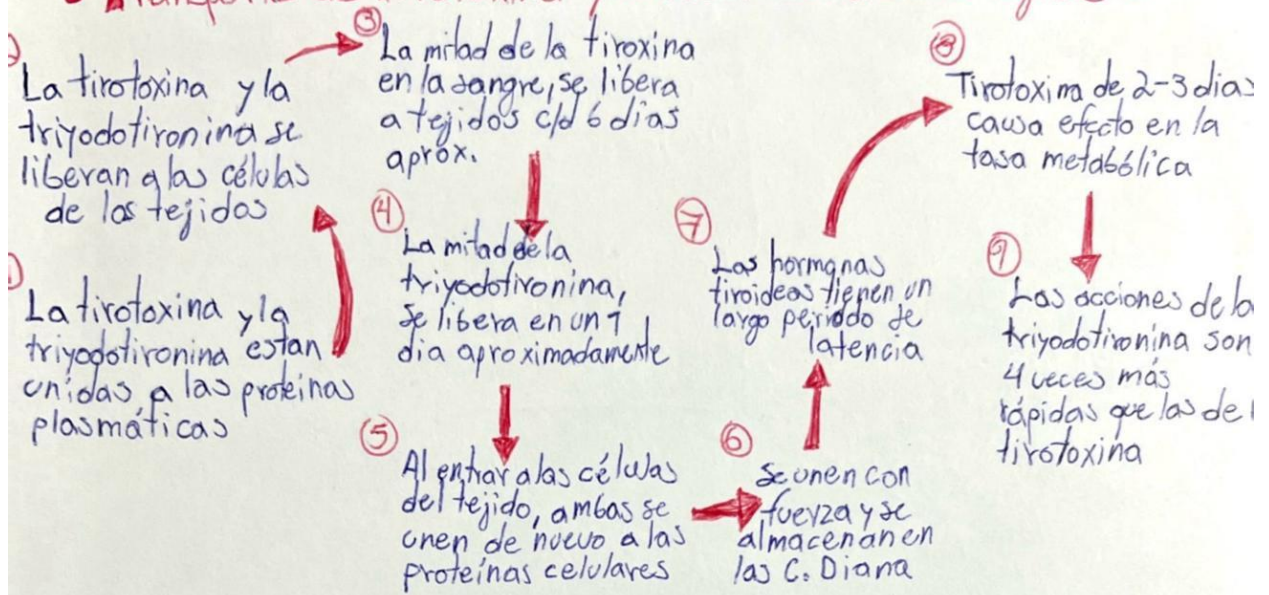 Transporte
①
La tirotoxina y la
triyodotironina estan
unidas a las proteinas
plasmáticas
La tirotoxina y la
triyodotironina se
liberan a las células
de los tejidos
③
La mitad de la tiroxina
en la sangre, se libera
a tejidos c/d 6 dias
aprox.
④
La mitad de la
triyodotironina,
se libera en un 1
dia aproximadamente
⑤
Al entrar a las células
del tejido, ambas se
unen de nuevo a las
proteínas celulares
⑥
Se unen con
fuerza y se
almacenan en
las C. Diana
⑦
Las hormonas
tiroideas tienen un
largo periodo de
latencia
⑧
Tirotoxina de 2-3 dias
causa efecto en la
tasa metabólica
⑨
Las acciones de la
triyodotironina son
4 veces más
rápidas que las de
tirotoxina